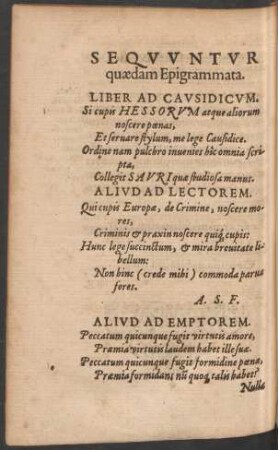 SEQVVNTVR
quædam Epigrammata.
LIBER AD CAVSIDICVM.
Si cupis HESSORVM atque aliorum
noscere pœnas,
Et seruare stylum, me lege Causidice.
Ordine nam pulchro inuenies hîc omnia scri-
pta,
Collegit SAVRI quæ studiosa manus.
ALIVD AD LECTOREM.
Qui cupis Europæ, de Crimine, noscere mo-
res,
Criminis & praxin noscere quisq; cupis:
Hunc lege succinctum, & mira breuitate li-
bellum:
Non hinc (crede mihi) commoda parua
feres.
A. S. F.
ALIVD AD EMPTOREM.
Peccatum quicunque fugit virtutis amore,
Præmia virtutis laudem habet ille suæ.
Peccatum quicunque fugit formidine pœnæ,
Præmia formidans nũ quoq; talis habet?
Nulla